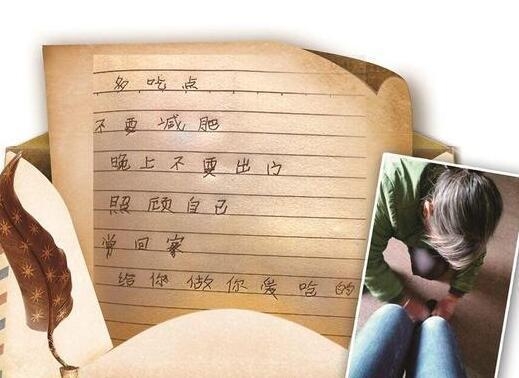 多吃点
不要减肥
晚上不要出门
照顾自己
常回家
给你做你爱吃的